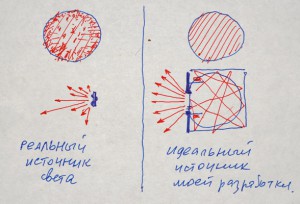 РЕАЛЬНЫЙ
ИСТОЧНИК
СВЕТА
ИДЕАЛЬНЫЙ
ИСТОЧНИК
МОЕЙ РАЗРАБОТКИ.